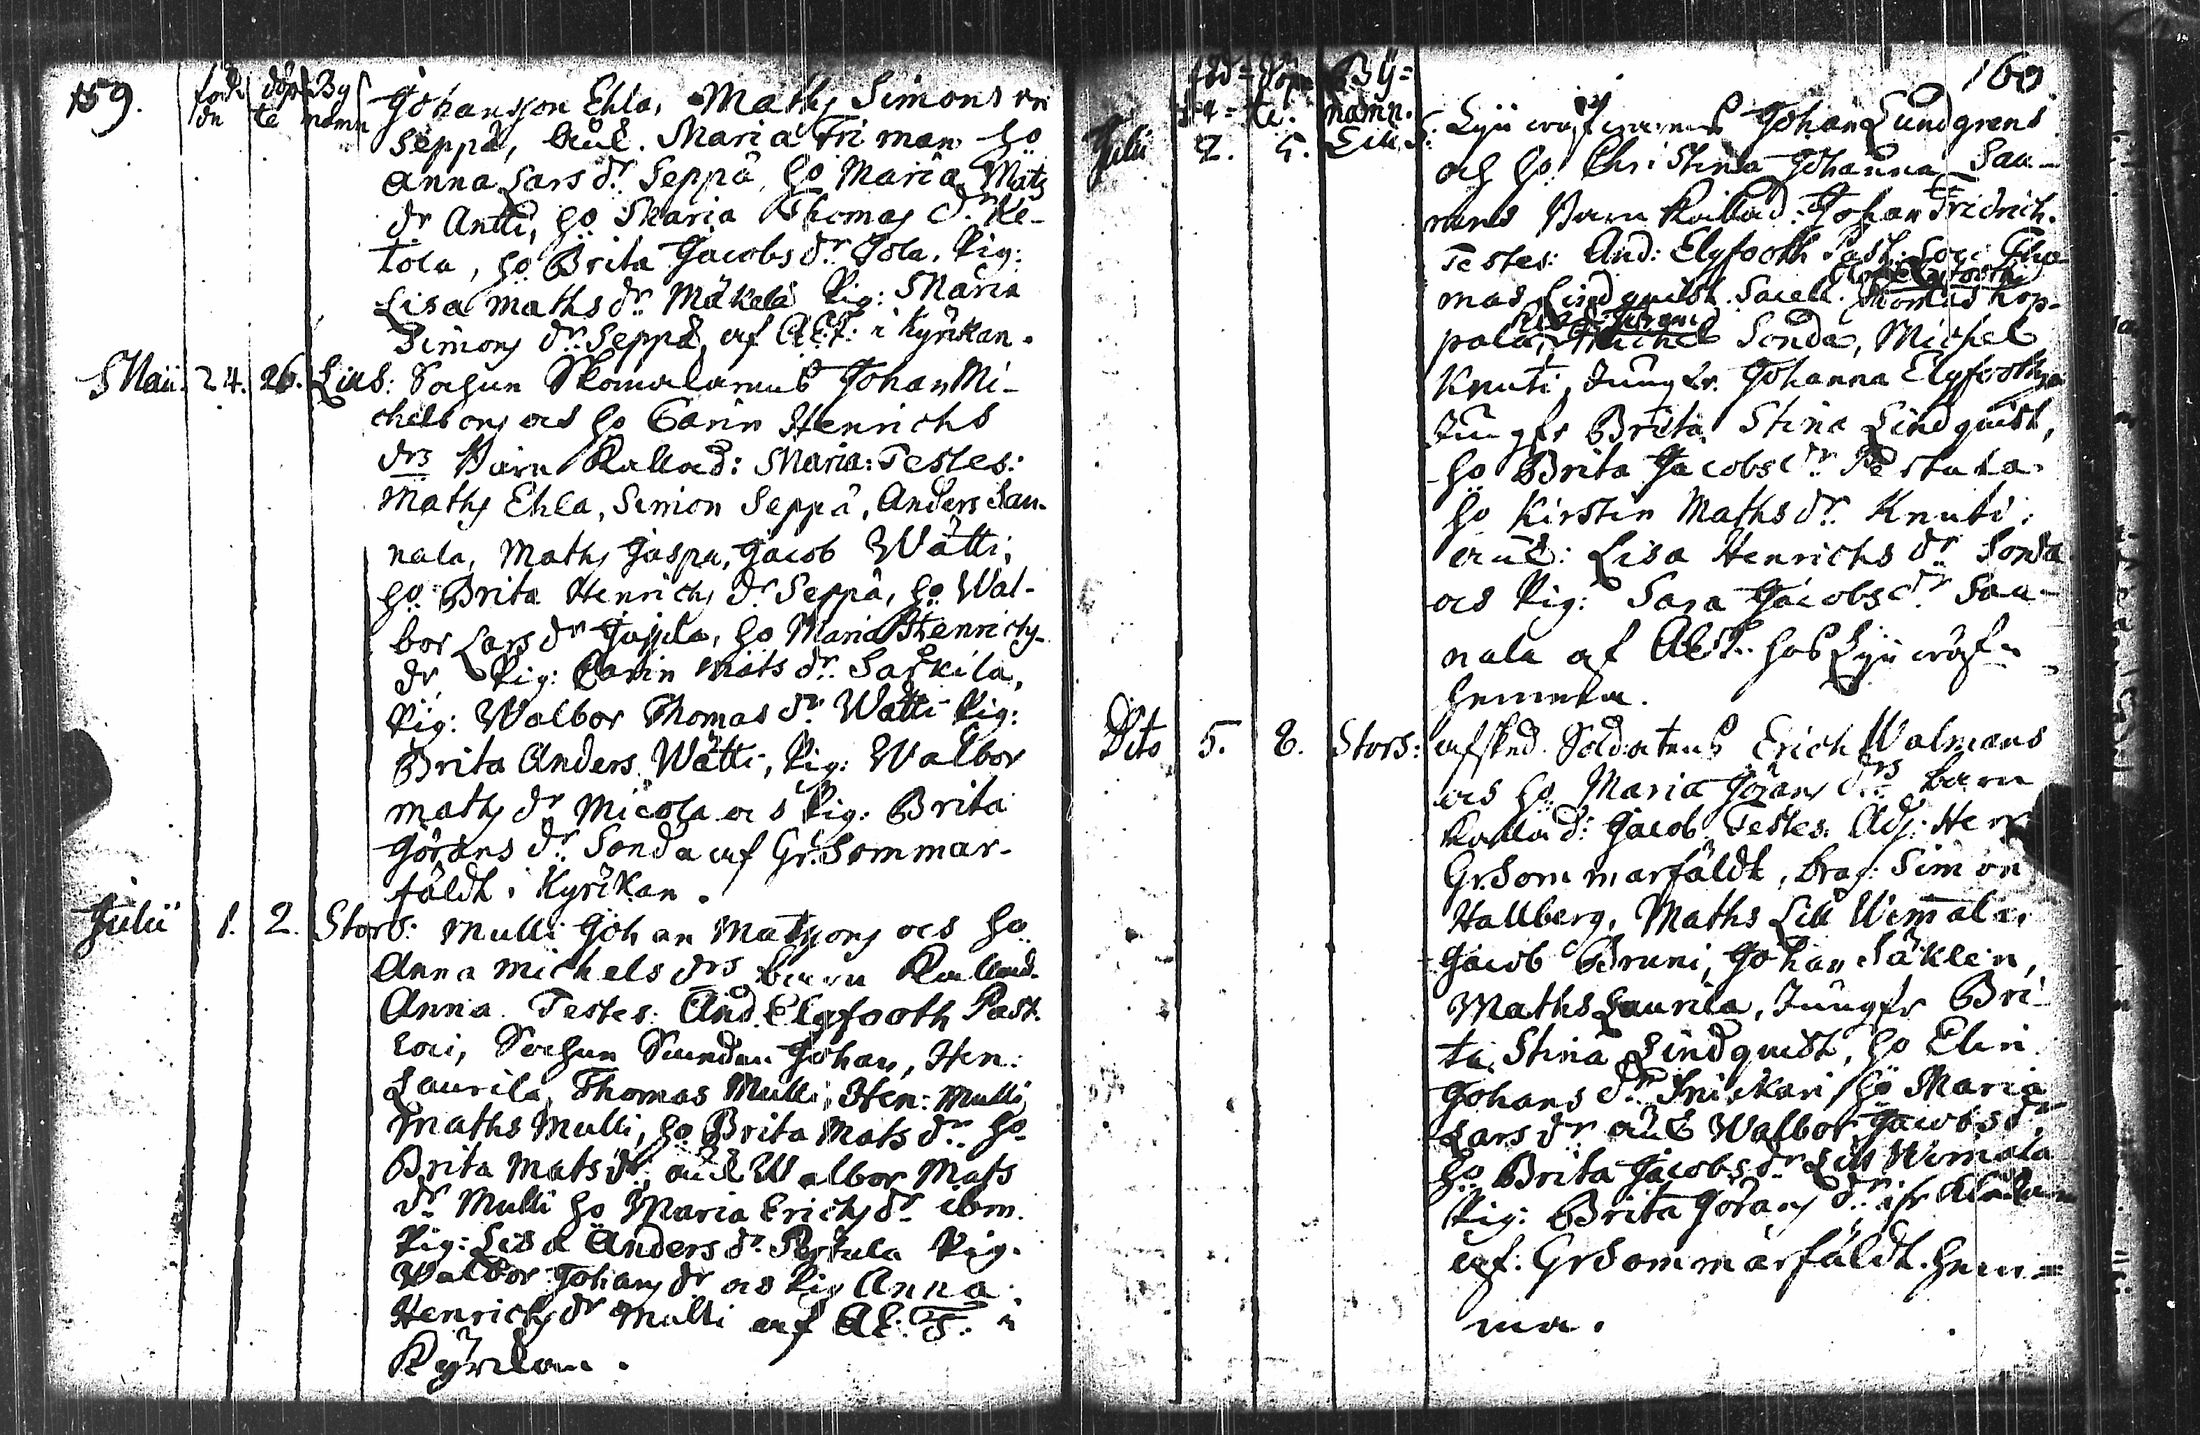 159. föd- döp- By
de te namn
Johansson Ehla, Maths Simons on
Seppä, Enk. Maria Friman ho
Anna Lars dr. Seppä, ho Maria Mats
dr Antti, ho Maria Thomas dr. Ke-
tola, ho Brita Jacobs dr. Jola. Pig:
Lisa Maths dr. Mäkelä Pig: Maria
Simons dr. Seppä, af i Kyrckan.
Maii. 24. 26. Lills: Sochen Skomakarens Johan Mi-
chelsons och ho Carin Henrichs
drs Barn Kallad: Maria: Testes:
Maths Ehla, Simon Seppä, Anders Sau-
nala, Maths Jaspa, Jacob Wätti,
ho Brita Henrichs dr. Seppä, ho Wal-
bor Lars dr Juppila, ho Maria Henrichs
dr, Pig: Carin Mats dr. Saxkila,
Pig: Walbor Thomas dr. Wätti Pig:
Brita Anders Wätti, Pig: Walbor
Maths dr Micola och Pig: Brita
Görans dr. Sonda af Gr. Sommar-
fäldt i Kyrckan.
Julii 1. 2. Stors: Mulli Johan Matsons och ho
Anna Michels drs barn Kallad.
Anna. Testes: And. Elgfooth Past.
loci, Sochen Johan, Hen:
Laurila, Thomas Mulli, Hen: Mulli
Maths Mulli, ho Brita Mats dr. ho
Brita Mats dr, Walbor Mats
dr. Mulli ho Maria Erichs dr. ibm.
Pig: Lisa Anders dr. Pertula Pig.
Walbor Johans dr och Pig Anna
Henrichs dr Mulli af i
Kyrckan.
föd- döp- By= 160
de te. namn.
Julii 2. 5. Lills: Johan Lundgrens
och ho Christina Johanna Sau-
rens Barn Kallad: Johan Fridrich.
Testes: And: Elgfooth Past: Loci Tho
mas Lindquist Sacell. Thomas Kop-
pala, Michel Sonda, Michel
Knuti, Jungfr. Johanna Elgfooth,
Jungfr Brita Stina Lindquist,
ho Brita Jacobs dr. Pertula.
ho Kirstin Maths dr. Knuti,
Lisa Henrichs dr. Sonda
och Pig: Sara Jacobs dr. Sau-
nala af hos
hemma.
Dito 5. 8. Stors: afsked. Soldatens Erich Walmans
och ho Maria Jörans drs barn
Kallad: Jacob. Testes. Adj: Herr
Gr. Sommarfäldt, Simon
Hallberg, Maths Lill Wimala,
Jacob Bruni, Johan Säklén,
Maths Laurila, Jungfr Bri-
ta, Stina Lindquist, ho Elin
Johans dr. Sniskari ho Maria
Lars dr Walbor Jacobs dr.
ho Brita Jacobs dr Lill Wimala
Pig: Brita Görans dr.
af: Gr Sommarfäldt. hem=
ma.